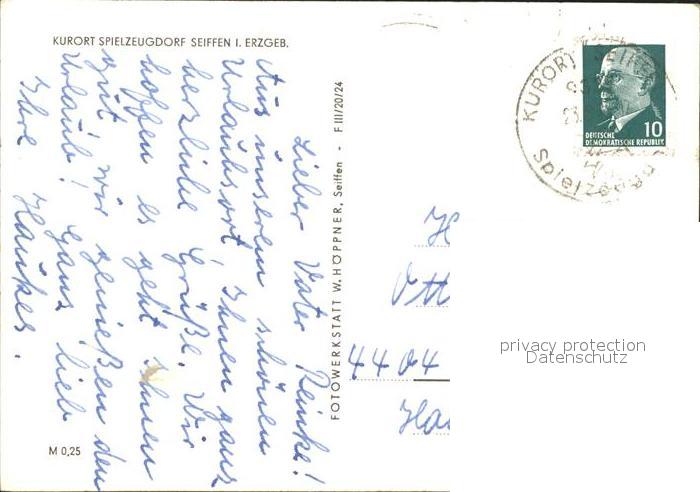 KURORT SPIELZEUGDORF SEIFFEN I. ERZGEB.
Lieber Vater Reinke!
Aus unserem schönen
Urlaubsort Ihnen ganz
herzliche Grüße. Wir
hoffen es geht Ihnen
gut. Wir genießen den
Urlaub! Ganz lieb
Ihre Haukes.
M 0,25
FOTOWERKSTATT W. HÖPPNER, Seiffen - F III/20/24
KURORT SEIFFEN
Spielzeug
10
DEUTSCHE
DEMOKRATISCHE REPUBLIK
H
Ott
4404
Ha
privacy protection
Datenschutz